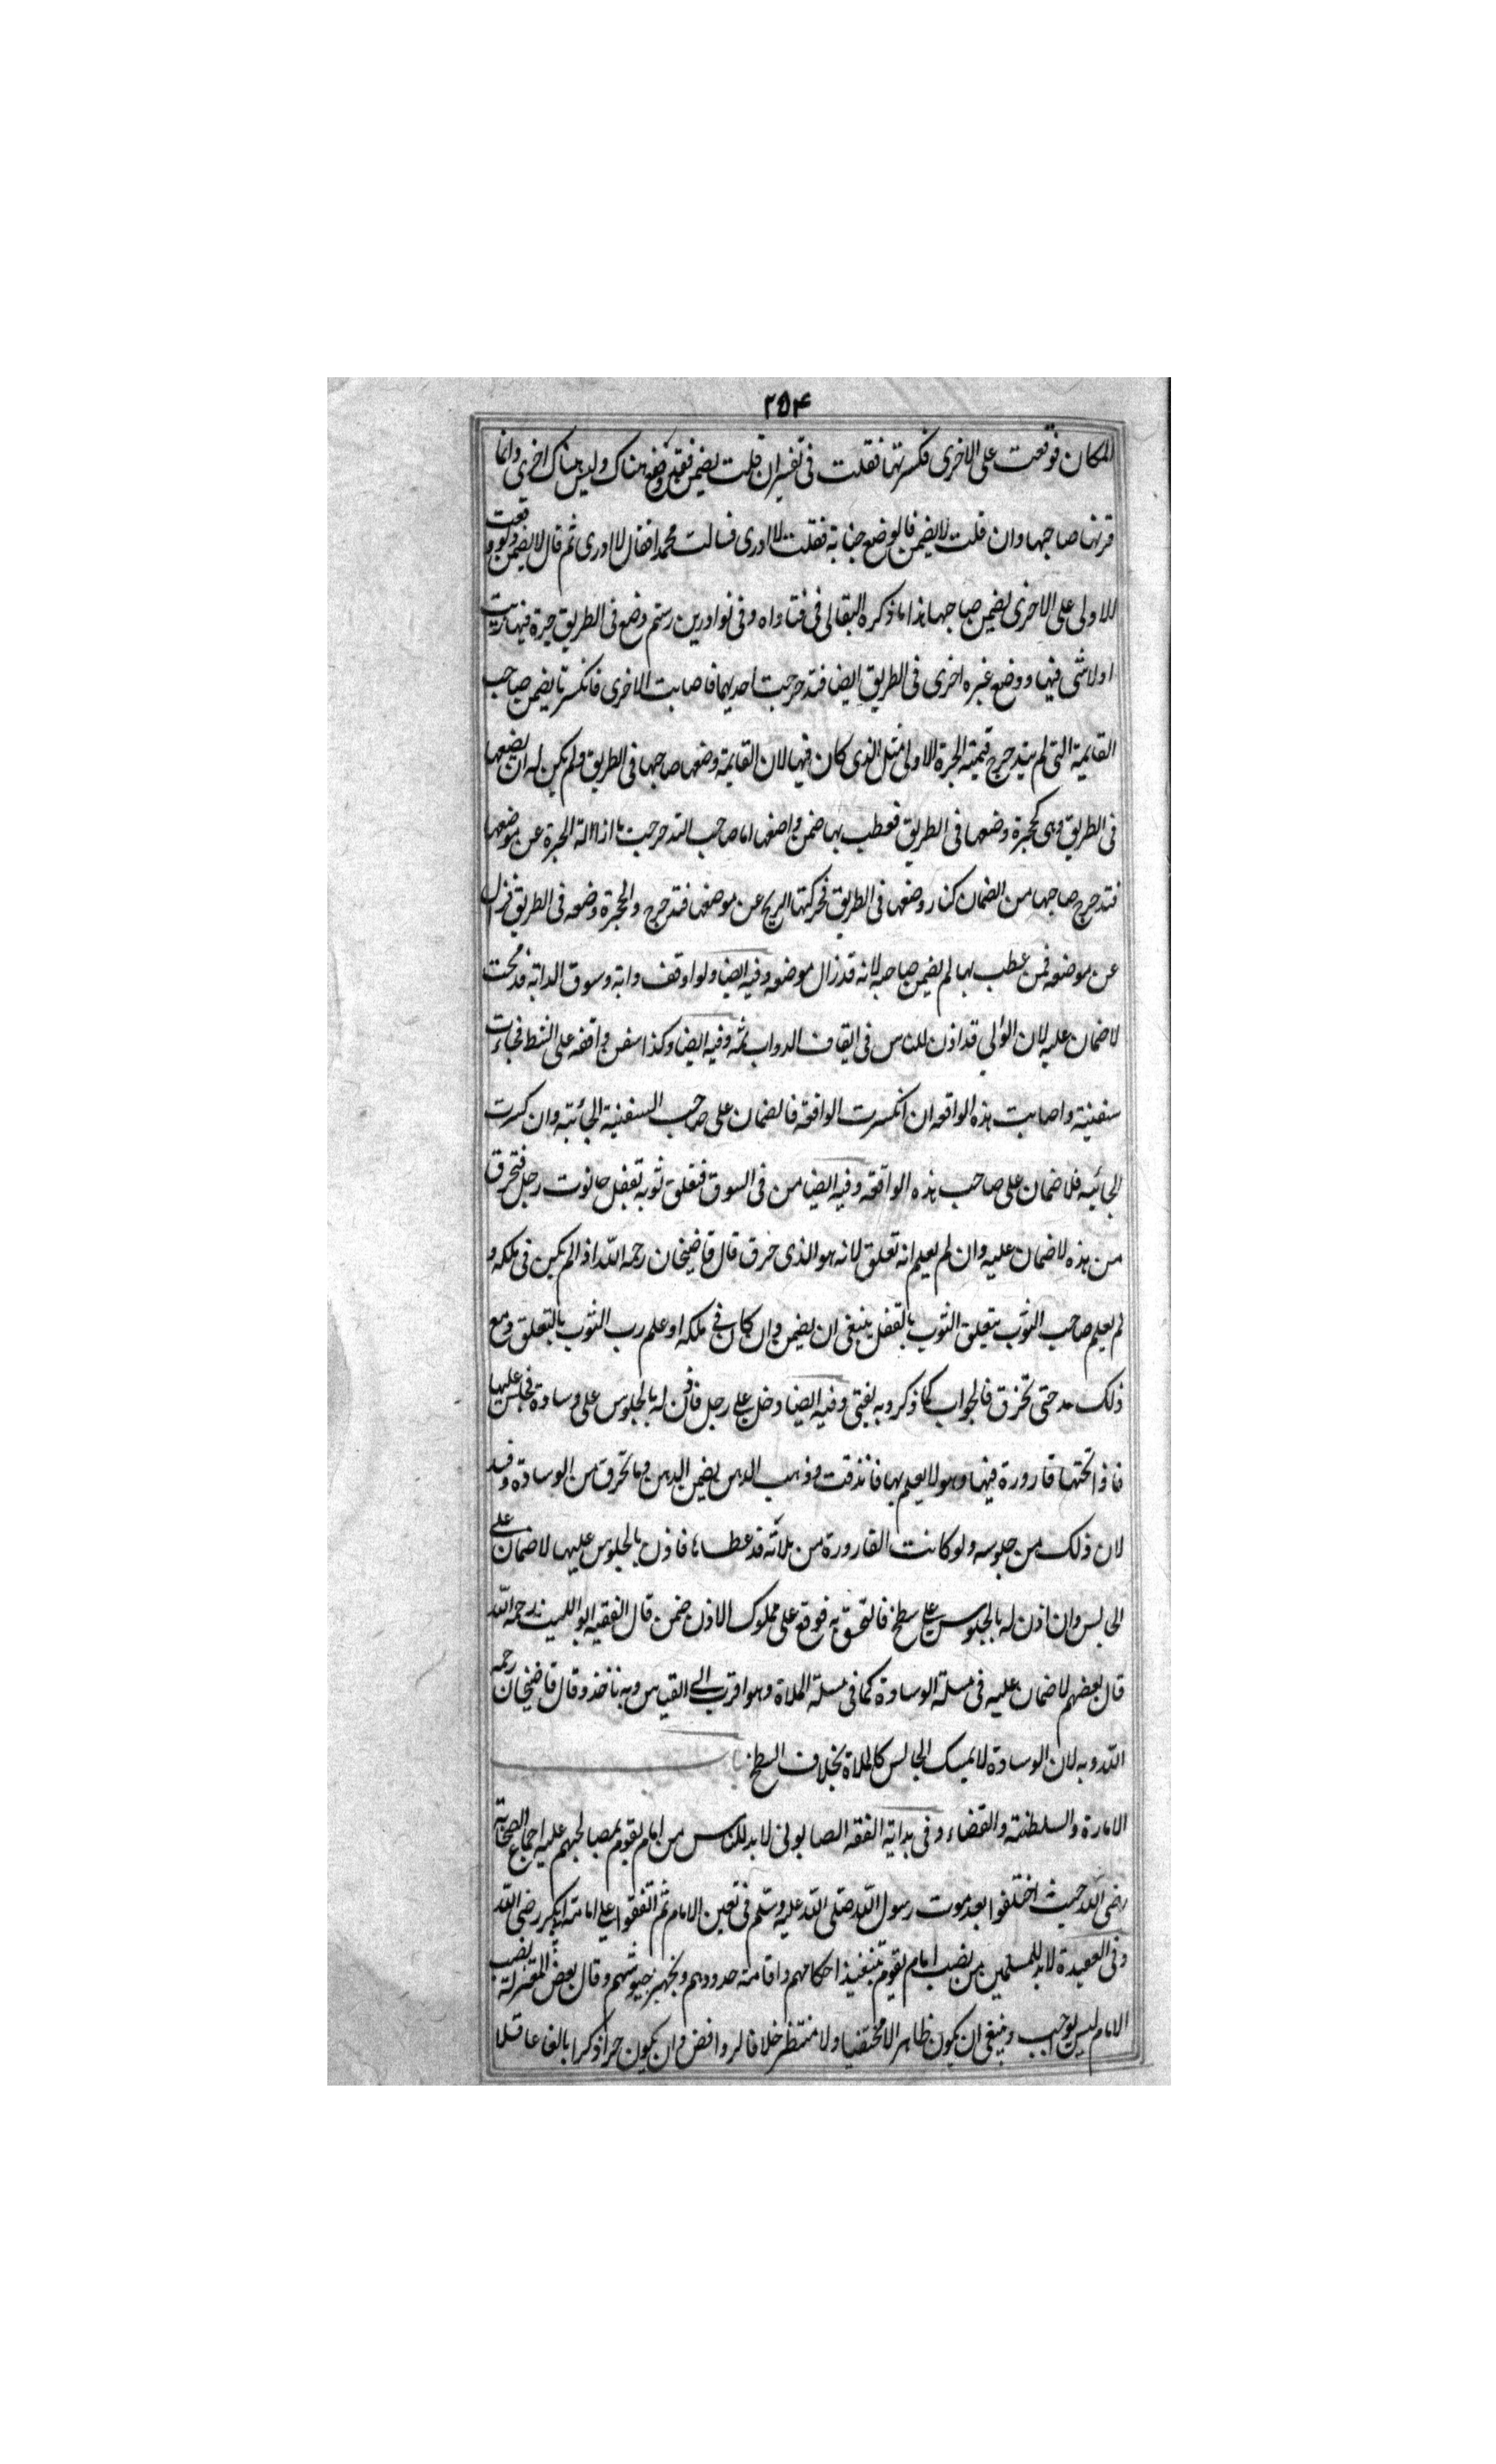 ٢٥٤
المكان فوقعت على الاخرى فكسرتها فقلت فى تفسير ان قلت يضمن فقد وضعه هناك وليس هناك اخرى وانما
قربها صاحبها وان قلت لا يضمن فالوضع جناية فقلت لا ادرى فسالت محمدا فقال لا ادرى ثم قال لا يضمن ولو وقعت
الاولى على الاخرى يضمن صاحبها هذا ما ذكره البقالى فى فتاواه وفى نوادر بن رستم وضع فى الطريق جرة فيها زيت
اولا شى فيها ووضع غيره اخرى فى الطريق ايضا فتدحرجت احديهما فاصابت الاخرى فانكسرتا يضمن صاحب
القايمة التى لم يتدحرج قيمة الجرة الاولى مثل الذى كان فيها لان القايمة وضعها صاحبها فى الطريق ولم يكن له ان يضعها
فى الطريق وهى كحجرة وضعها فى الطريق فعطب بها ضمن واضعها اما صاحب التدحرجت اذا زالت الجرة عن موضعها
فتدحرج صاحبها من الضمان كنار وضعها فى الطريق فحركتها الريح عن موضعها فتدحرج والحجرة وضعه فى الطريق فزال
عن موضعه فمن عطب بها لم يضمن صاحبه لانه قد زال موضعه وفيه ايضا ولو اوقف دابة وسوق الدابة فرمحت
لا ضمان عليه لان الوالي قد اذن للناس فى ايقاف الدواب ثمه وفيه ايضا وكذا سفن واقفه على الشط فجاءت
سفينة واصابت هذه الواقعه ان انكسرت الواقفه فالضمان على صاحب السفينة الجائية وان كسرت
الجائيه فلا ضمان على صاحب هذه الواقفه وفيه ايضا من فى السوق فتعلق ثوبه تقفل حانوت رجل فتخرق
من هذه لا ضمان عليه وان لم يعلم انه تعلق لانه هو الذى خرق قال قاضيخان رحمه الله اذا لم يكن فى ملكه و
لم يعلم صاحب الثوب بتعلق الثوب بالقفل ينبغى ان يضمن وان كان فى ملكه او علم رب الثوب بالتعلق ومع
ذلك مد حتى تخرق فالجواب كما ذكر وبه يفتى وفيه ايضا دخل على رجل فاذن له بالجلوس على وسادة فجلس عليها
فاذا تحتها قارورة فيها وهو لا يعلم بها فاندقت وذهب الدهن يضمن الدهن وما تخرق من الوسادة وفسد
لان ذلك من جلوسه ولو كانت القارورة من ملاته قد غطاها فاذن بالجلوس عليها لا ضمان على
الجالس وان اذن له بالجلوس على سطح فالتحق به فوقع على مملوك الاذن ضمن قال الفقيه ابو الليث رحمه الله
قال بعضهم لا ضمان عليه فى مسلة الوسادة كما فى مسلة الملاة وهو اقرب الى القياس وبه ناخذ وقال قاضيخان رحمه
الله وبه لان الوسادة لا يمسك الجالس كالملاة بخلاف السطح باب
الامارة والسلطنة والقضاء وفى بداية الفقه الصابونى لابد للناس من امام يقوم بمصالحهم عليه اجماع الصحابة
رضى الله حيث اختلفوا بعد موت رسول الله صلى الله عليه وسلم فى تعين الامام ثم اتفقوا على امامة ابى بكر رضى الله
وفى العقيدة لابد للمسلمين من نصب امام يقوم بتنفيذ احكامهم واقامة حدودهم وتجهيز جيوشهم وقال بعض المعتزلة نصب
الامام ليس بواجب وينبغى ان يكون ظاهر الا مختفيا ولا منتظر خلافا لروافض وان يكون حرا ذكرا بالغا عاقلا